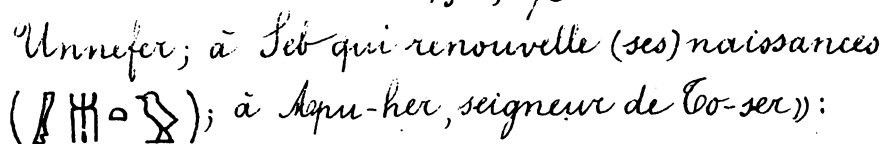 Unnefer; à Seb qui renouvelle (ses) naissances
(𓄙 𓄟 𓏏 𓅱); à Apu-her, seigneur de To-ser»: